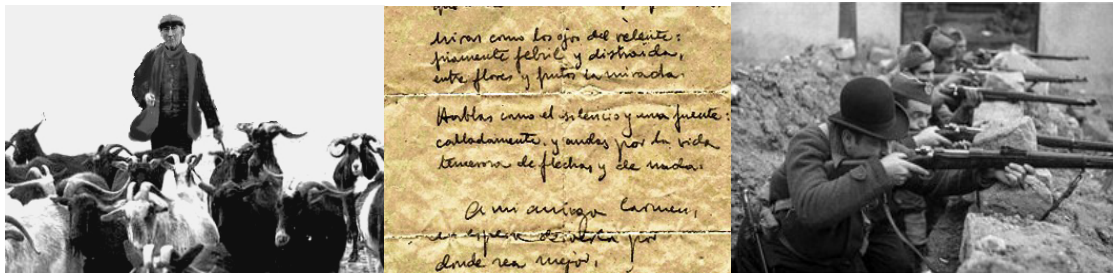 miras como los ojos del relente:
piamente febril y distraída,
entre flores y frutos la mirada.
Hablas como el silencio y una fuente:
calladamente, y andas por la vida
temerosa de flechas y de nada.
A mi amiga Carmen,
en espera de verla por
donde sea mejor,